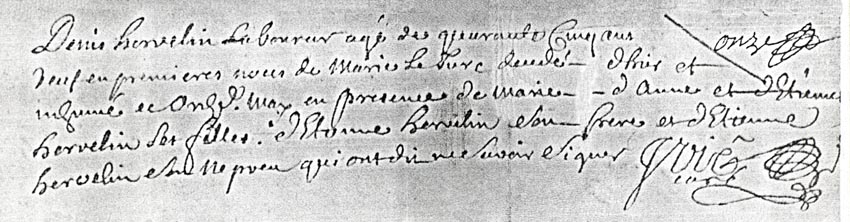 Denis hervelin Laboureur agé de quarante Cinq ans onze
veuf en premieres noces de Marie Le Turc decedé d'hier et
inhumé ce Onze May en presence de Marie - d'Anne et d'Etienne
hervelin ses filles. d'Etienne hervelin son frere et d'Etienne
hervelin son Neveu qui ont dit ne savoir signer